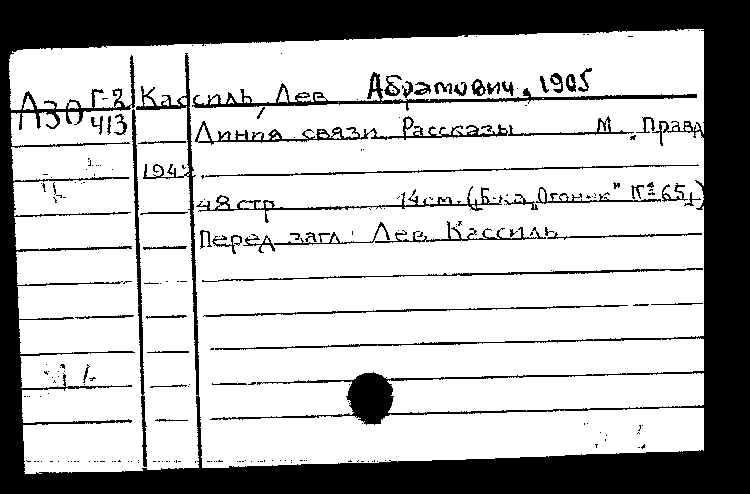 А30 Г-2 Кассиль, Лев Абрамович, 1905
413 Линия связи. Рассказы. М., Правд
1942.
48 стр. 14 см. (Б-ка „Огонек" № 65)
Перед загл.: Лев Кассиль.